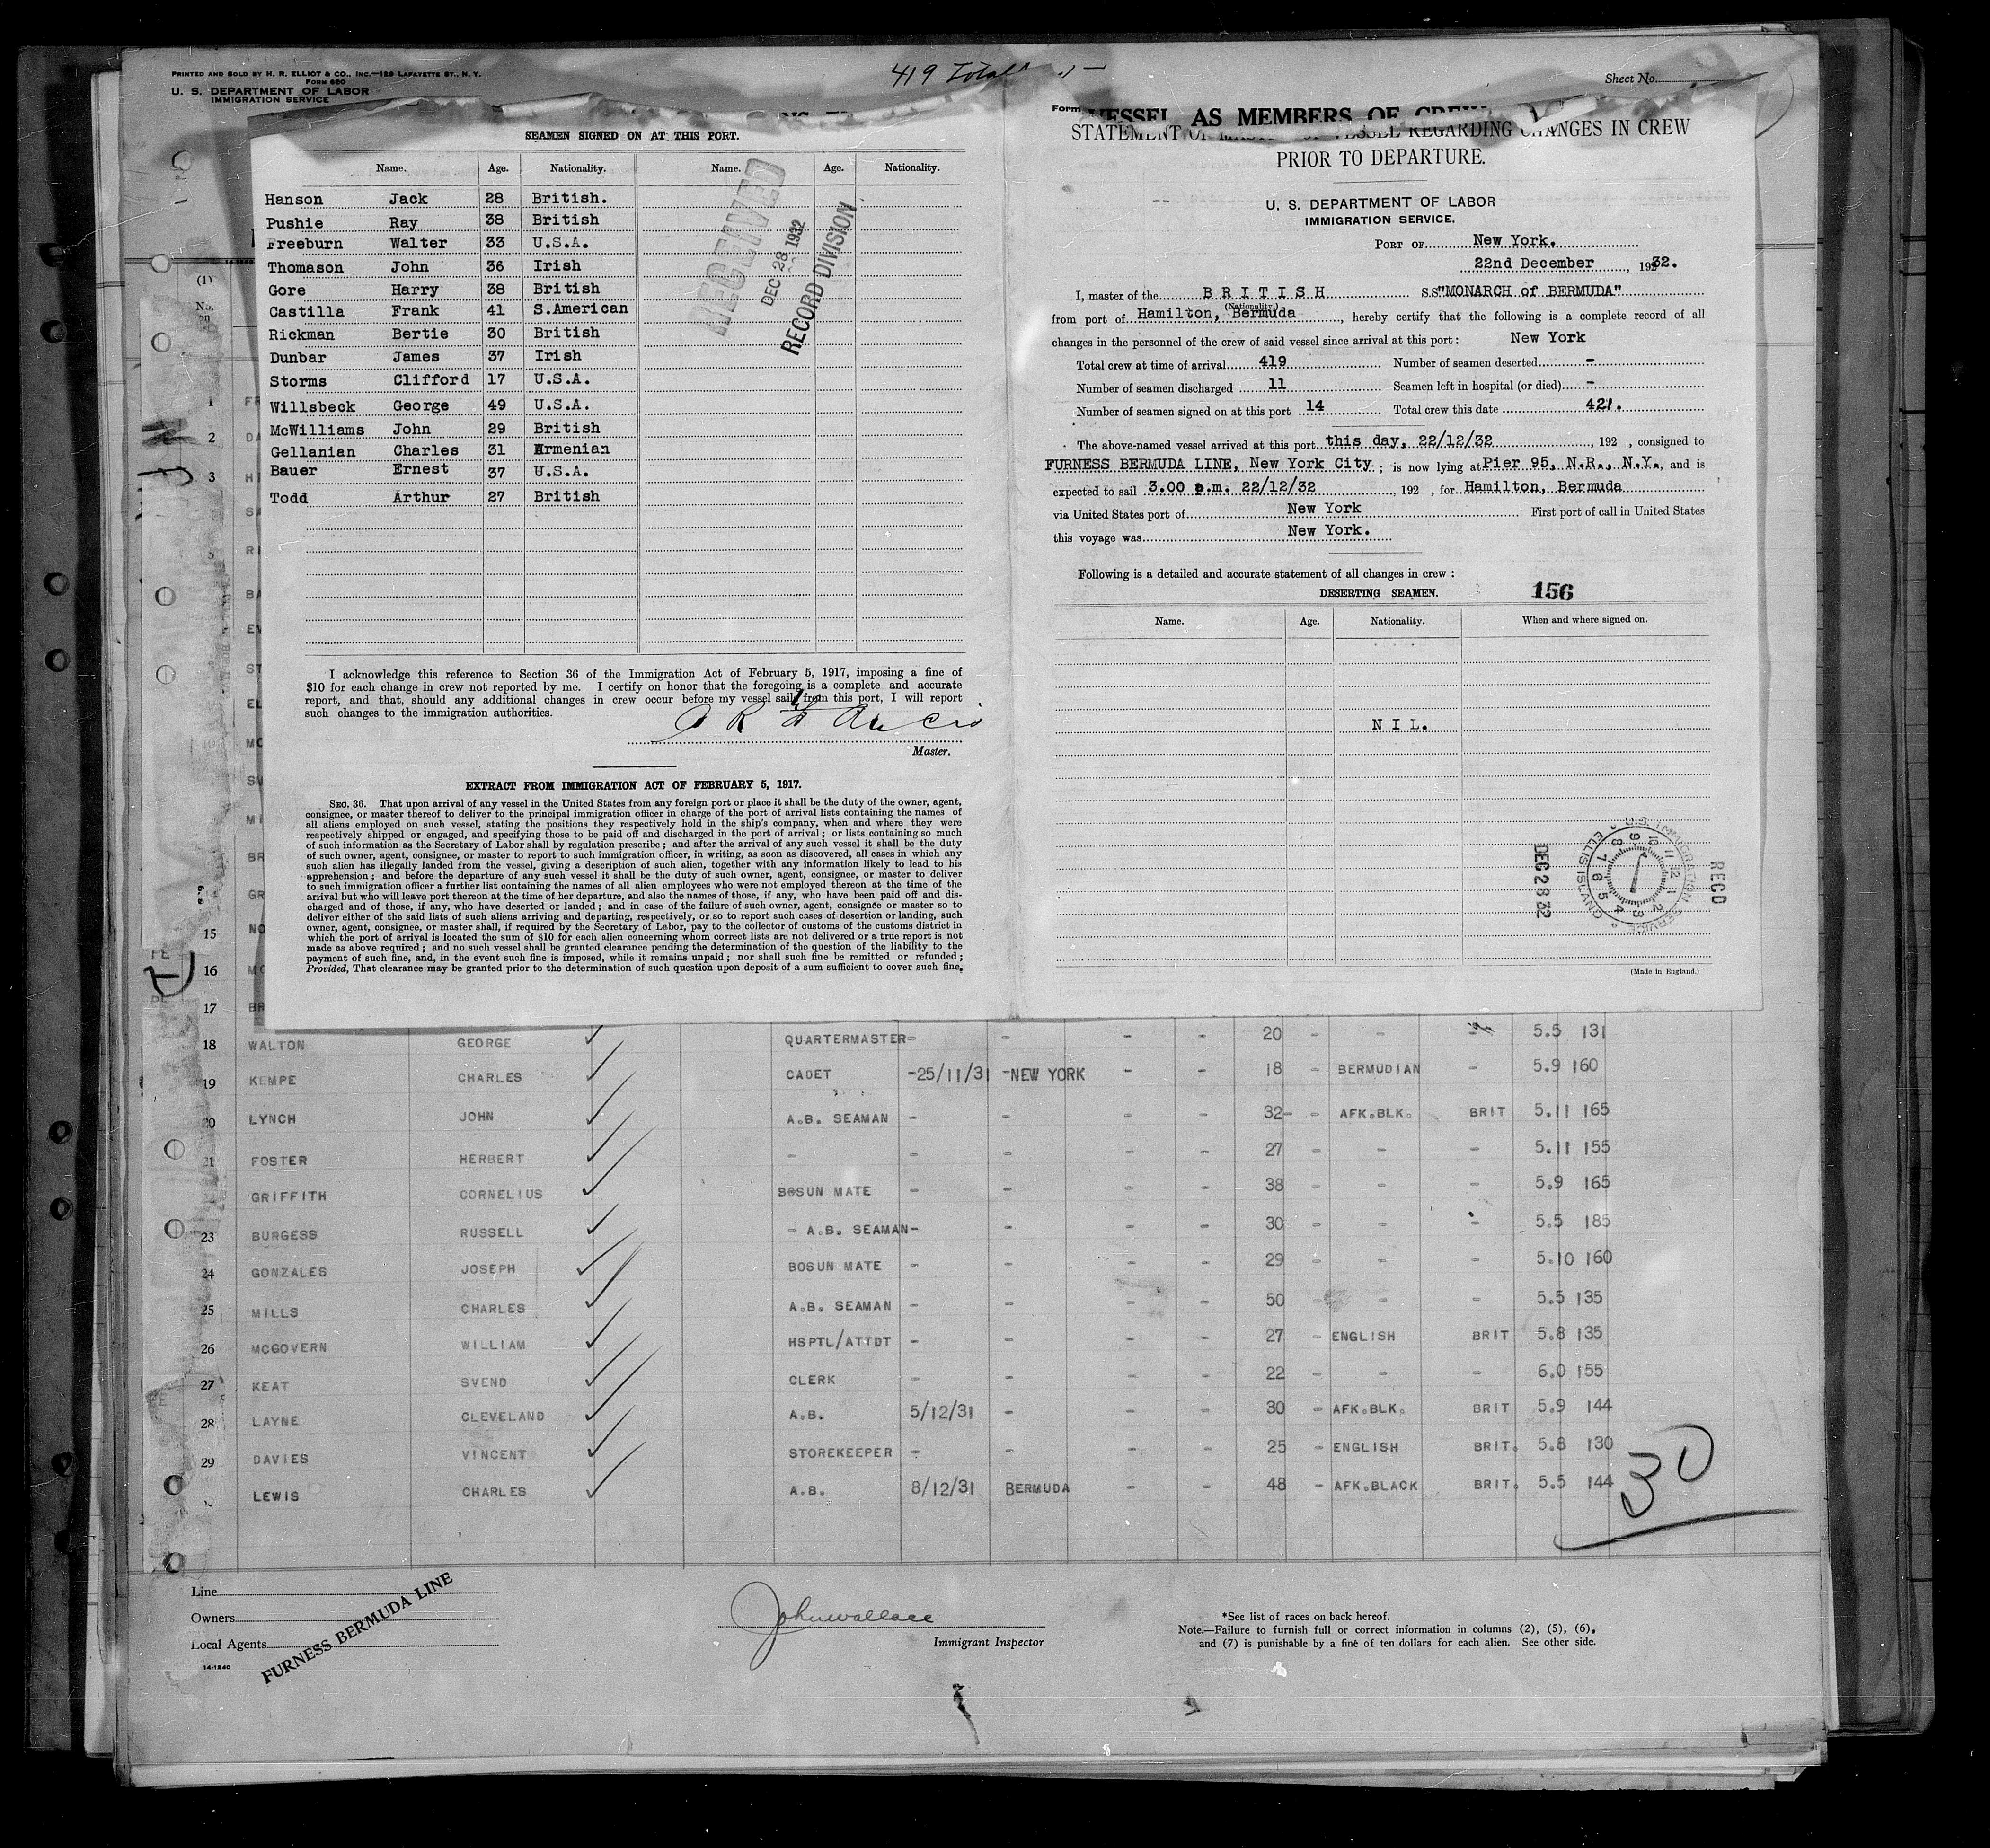 PRINTED AND SOLD BY H. R. ELLIOT & CO., INC.—129 LAFAYETTE ST., N. Y.
FORM 660
U. S. DEPARTMENT OF LABOR
IMMIGRATION SERVICE
419 Total
Sheet No.
SEAMEN SIGNED ON AT THIS PORT.
Name. Age. Nationality. Name. Age. Nationality.
Hanson Jack 28 British.
Pushie Ray 38 British
Freeburn Walter 33 U.S.A.
Thomason John 36 Irish
Gore Harry 38 British
Castilla Frank 41 S.American
Rickman Bertie 30 British
Dunbar James 37 Irish
Storms Clifford 17 U.S.A.
Willsbeck George 49 U.S.A.
McWilliams John 29 British
Gellanian Charles 31 Armenian
Bauer Ernest 37 U.S.A.
Todd Arthur 27 British
RECEIVED
DEC 28 1932
RECORD DIVISION
I acknowledge this reference to Section 36 of the Immigration Act of February 5, 1917, imposing a fine of
$10 for each change in crew not reported by me. I certify on honor that the foregoing is a complete and accurate
report, and that, should any additional changes in crew occur before my vessel sails from this port, I will report
such changes to the immigration authorities.
Master.
EXTRACT FROM IMMIGRATION ACT OF FEBRUARY 5, 1917.
SEC. 36. That upon arrival of any vessel in the United States from any foreign port or place it shall be the duty of the owner, agent,
consignee, or master thereof to deliver to the principal immigration officer in charge of the port of arrival lists containing the names of
all aliens employed on such vessel, stating the positions they respectively hold in the ship's company, when and where they were
respectively shipped or engaged, and specifying those to be paid off and discharged in the port of arrival; or lists containing so much
of such information as the Secretary of Labor shall by regulation prescribe; and after the arrival of any such vessel it shall be the duty
of such owner, agent, consignee, or master to report to such immigration officer, in writing, as soon as discovered, all cases in which any
such alien has illegally landed from the vessel, giving a description of such alien, together with any information likely to lead to his
apprehension; and before the departure of any such vessel it shall be the duty of such owner, agent, consignee, or master to deliver
to such immigration officer a further list containing the names of all alien employees who were not employed thereon at the time of the
arrival but who will leave port thereon at the time of her departure, and also the names of those, if any, who have been paid off and dis-
charged and of those, if any, who have deserted or landed; and in case of the failure of such owner, agent, consignee or master so to
deliver either of the said lists of such aliens arriving and departing, respectively, or so to report such cases of desertion or landing, such
owner, agent, consignee, or master shall, if required by the Secretary of Labor, pay to the collector of customs of the customs district in
which the port of arrival is located the sum of $10 for each alien concerning whom correct lists are not delivered or a true report is not
made as above required; and no such vessel shall be granted clearance pending the determination of the question of the liability to the
payment of such fine, and, in the event such fine is imposed, while it remains unpaid; nor shall such fine be remitted or refunded;
Provided, That clearance may be granted prior to the determination of such question upon deposit of a sum sufficient to cover such fine.
Form
VESSEL AS MEMBERS OF CREW
STATEMENT OF MASTER OF VESSEL REGARDING CHANGES IN CREW
PRIOR TO DEPARTURE.
U. S. DEPARTMENT OF LABOR
IMMIGRATION SERVICE.
PORT OF New York.
22nd December, 1932.
I, master of the BRITISH S.S "MONARCH of BERMUDA"
(Nationality.)
from port of Hamilton, Bermuda, hereby certify that the following is a complete record of all
changes in the personnel of the crew of said vessel since arrival at this port: New York
Total crew at time of arrival 419 Number of seamen deserted -
Number of seamen discharged 11 Seamen left in hospital (or died) -
Number of seamen signed on at this port 14 Total crew this date 421.
The above-named vessel arrived at this port this day, 22/12/32, 192 , consigned to
FURNESS BERMUDA LINE, New York City; is now lying at Pier 95, N.R., N.Y., and is
expected to sail 3.00 p.m. 22/12/32, 192 , for Hamilton, Bermuda
via United States port of New York First port of call in United States
this voyage was New York.
Following is a detailed and accurate statement of all changes in crew:
DESERTING SEAMEN. 156
Name. Age. Nationality. When and where signed on.
NIL.
DEC 28 32
U.S. IMMIGRATION SERVICE ELLIS ISLAND
REC'D
(Made in England.)
(1)
No.
on
1 FR
2 DA
3 H
SA
5 RI
BA
EV
ST
EL
MC
SW
MI
BR
GR
15 NO
16 MC
17 BR
18 WALTON GEORGE QUARTERMASTER - - - - 20 - - - 5.5 131
19 KEMPE CHARLES CADET -25/11/31 -NEW YORK - - 18 - BERMUDIAN - 5.9 160
20 LYNCH JOHN A.B. SEAMAN - - - - 32- - AFK.BLK. BRIT 5.11 165
21 FOSTER HERBERT - - - - - 27 - - - 5.11 155
GRIFFITH CORNELIUS BOSUN MATE - - - - 38 - - - 5.9 165
23 BURGESS RUSSELL - A.B. SEAMAN- - - - 30 - - - 5.5 185
24 GONZALES JOSEPH BOSUN MATE - - - - 29 - - - 5.10 160
25 MILLS CHARLES A.B. SEAMAN - - - - 50 - - 5.5 135
26 MCGOVERN WILLIAM HSPTL/ATTDT - - - - 27 - ENGLISH BRIT 5.8 135
27 KEAT SVEND CLERK - - - - 22 - - - 6.0 155
28 LAYNE CLEVELAND A.B. 5/12/31 - - - 30 - AFK.BLK. BRIT 5.9 144
29 DAVIES VINCENT STOREKEEPER - - - - 25 - ENGLISH BRIT. 5.8 130
LEWIS CHARLES A.B. 8/12/31 BERMUDA - - 48 - AFK.BLACK BRIT. 5.5 144
30
Line
Owners
Local Agents
FURNESS BERMUDA LINE
14-1240
John Wallace
Immigrant Inspector
*See list of races on back hereof.
Note.—Failure to furnish full or correct information in columns (2), (5), (6),
and (7) is punishable by a fine of ten dollars for each alien. See other side.